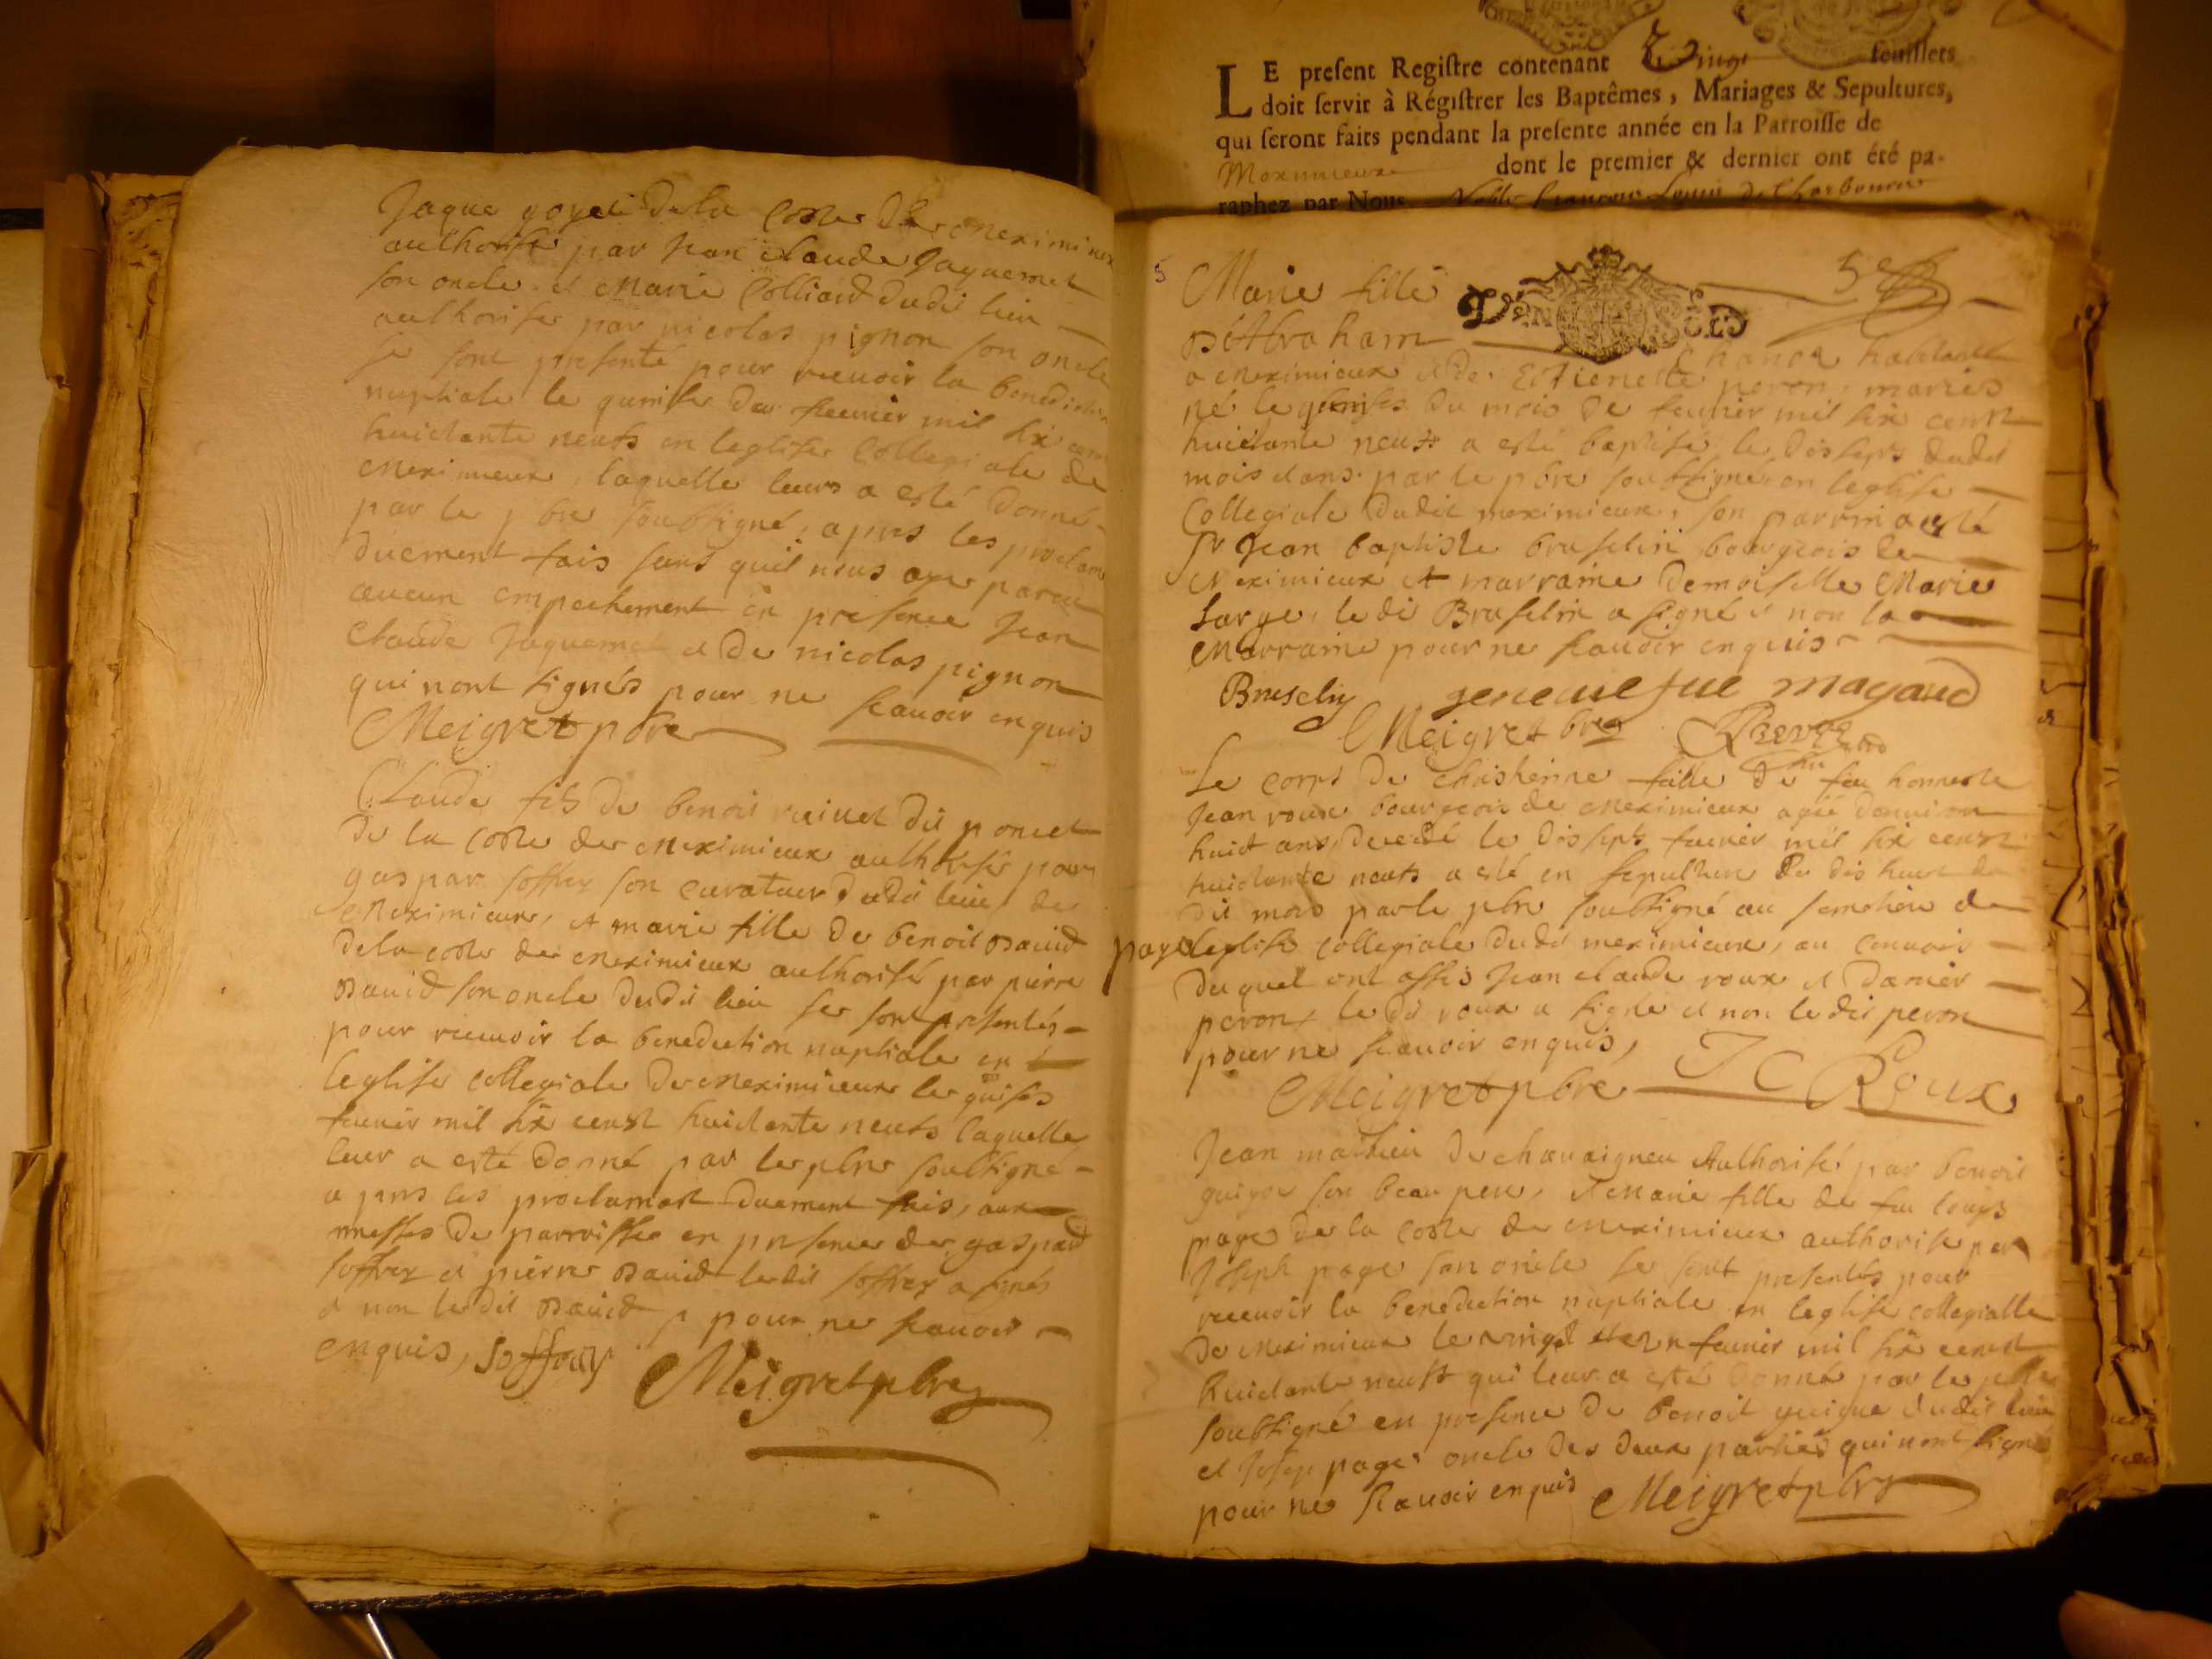 Jaque goyet de la Coste de Meximieux
authorisé par Jean Claude Jaquemet
son oncle et Marie Colliard dudit lieu
authorisée par nicolas pignon son oncle
se sont presenté pour recuoir la benediction
nuptiale le quinse de feurier mil six cens
huictante neufs en leglise Collegiale de
Meximieux, laquelle leurs a esté donné
par le pbre soubsigné, apres les proclam
duement fais sans quil nous aye paru
aucun empechement en presence Jean
Claude Jaquemet et de nicolas pignon
qui nont signés pour ne scauoir enquis
Meigret pbre
Claude fils de benoit dit poncet
de la Coste de Meximieux authorisé par
gaspar soffrey son curateur dudit lieu de
Meximieux, et marie fille de benoit Dauid
de la coste de Meximieux authorisé par pierre
Dauid son oncle dudit lieu se sont presentés
pour recuoir la benediction nuptiale en
leglise collegiale de Meximieux le quise
feurier mil six censt huictante neufs laquelle
leur a esté donné par le pbre soubsigné
apres les proclamast duement fais, aux
messes de parroisse en presence de gaspard
soffrey et pierre Dauid ledit soffrey a signés
et non ledit Dauid pour ne scauoir
enquis, Soffray
Meigret pbre
LE present Registre contenant Vingt feuillets
doit servir à Régistrer les Baptêmes, Mariages & Sepultures,
qui seront faits pendant la presente année en la Parroisse de
Meximieux dont le premier & dernier ont été pa-
raphez par Nous Noble François Louis de Charbonnier
5
Marie fille
D'Abraham habitant
a Meximieux et de Estienette peron mariés
né le quinse du mois de feurier mil six censt
huictante neufs a esté baptisé le dissept dudit
mois et ans par le pbre soubsigné en leglise
Collegiale dudit meximieux, son parrin a esté
Sr Jean baptiste bruselin bourgeois de
Meximieux et marraine Demoiselle Marie
Sarge, ledit Bruselin a signé et non la
Marraine pour ne scauoir enquis
Bruselin geneuiefue magaud
Meigret pbre
Le corps de Christienne fille de feu honneste
Jean roux bourgeois de Meximieux agée denuiron
huict ans, decedé le dissept feurier mil six censt
huictante neufs a esté en sepulture le dis huict du
dit mois par le pbre soubsigné au semetiere de
leglise collegiale dudit meximieux, au conuoir
duquel ont assis Jean claude roux et Danier
peron, ledit roux a signé et non ledit peron
pour ne scauoir enquis,
Meigret pbre J C Roux
Jean mathieu de chauaigneu Authorisé par benoit
guigue son beau pere, et Marie fille de feu louys
page de la Coste de Meximieux authorisé par
Joseph page son oncle se sont presentés pour
recuoir la benediction nuptiale en leglise collegialle
de Meximieux le vingt feurier mil six censt
huictante neufs qui leur a esté donné par le pbre
soubsigné en presence de benoit guigue dudit lieu
et Josep page oncle des deux parties qui nont signé
pour ne scauoir enquis Meigret pbre